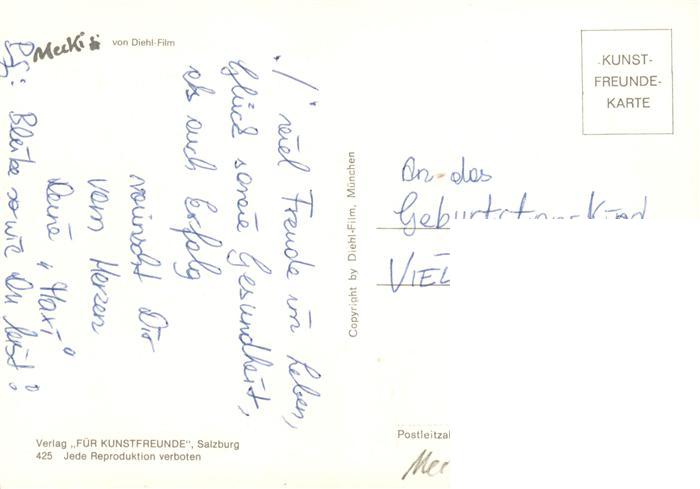 Mecki
von Diehl-Film
./. viel Freude im Leben,
Glück sowie Gesundheit,
als auch Erfolg
wünscht Dir
vom Herzen
Deine "Maxi"
PS: Bleibe so wie Du bist!
Verlag „FÜR KUNSTFREUNDE", Salzburg
425 Jede Reproduktion verboten
Copyright by Diehl-Film, München
-KUNST-
FREUNDE-
KARTE
An das
Geburtstagskind
VIEL
Postleitzal
Mec